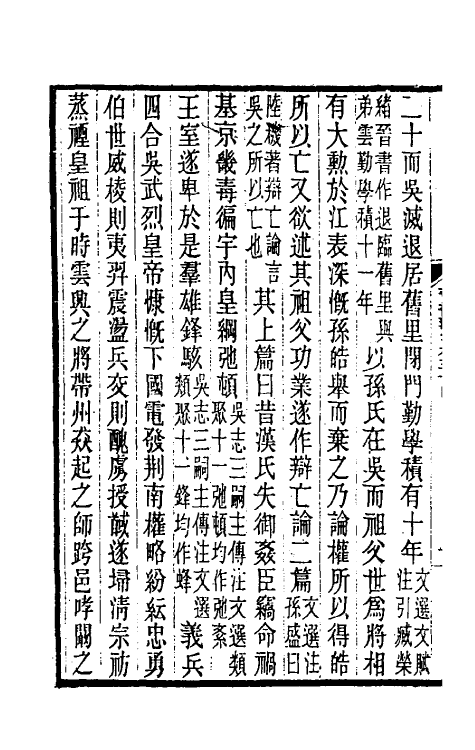 二十而吳滅退居舊里閉門勤學積有十年文選文賦注引臧榮
緒晉書作退臨舊里與弟雲勤學積十一年以孫氏在吳而祖父世爲將相
有大勳於江表深慨孫皓舉而棄之乃論權所以得皓
所以亡又欲述其祖父功業遂作辯亡論二篇文選注孫盛曰
陸機著辯亡論言吳之所以亡也其上篇曰昔漢氏失御姦臣竊命禍
基京畿毒徧宇內皇綱弛頓吳志三嗣主傳注文選類聚十一弛頓均作弛紊
王室遂卑於是羣雄鋒駭吳志三嗣主傳注文選類聚十一鋒均作蜂義兵
四合吳武烈皇帝慷慨下國電發荆南權略紛紜忠勇
伯世威棱則夷羿震盪兵交則醜虜授馘遂埽清宗祊
蒸禋皇祖于時雲興之將帶州焱起之師跨邑哮闞之